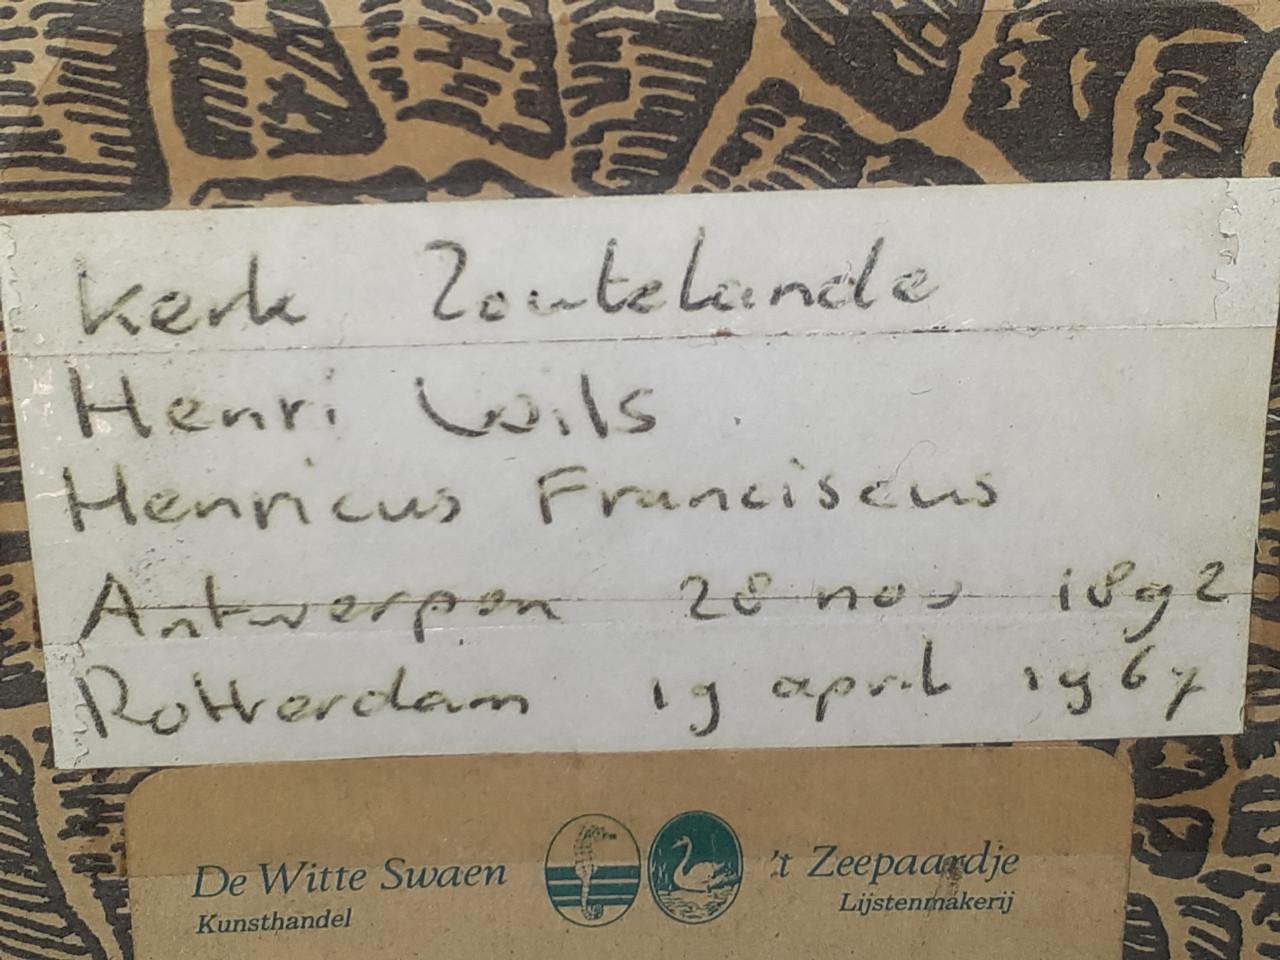 Kerk Zoutelande
Henri Wils
Henricus Franciscus
Antwerpen 28 nov 1892
Rotterdam 19 april 1967
De Witte Swaen 't Zeepaardje
Kunsthandel Lijstenmakerij